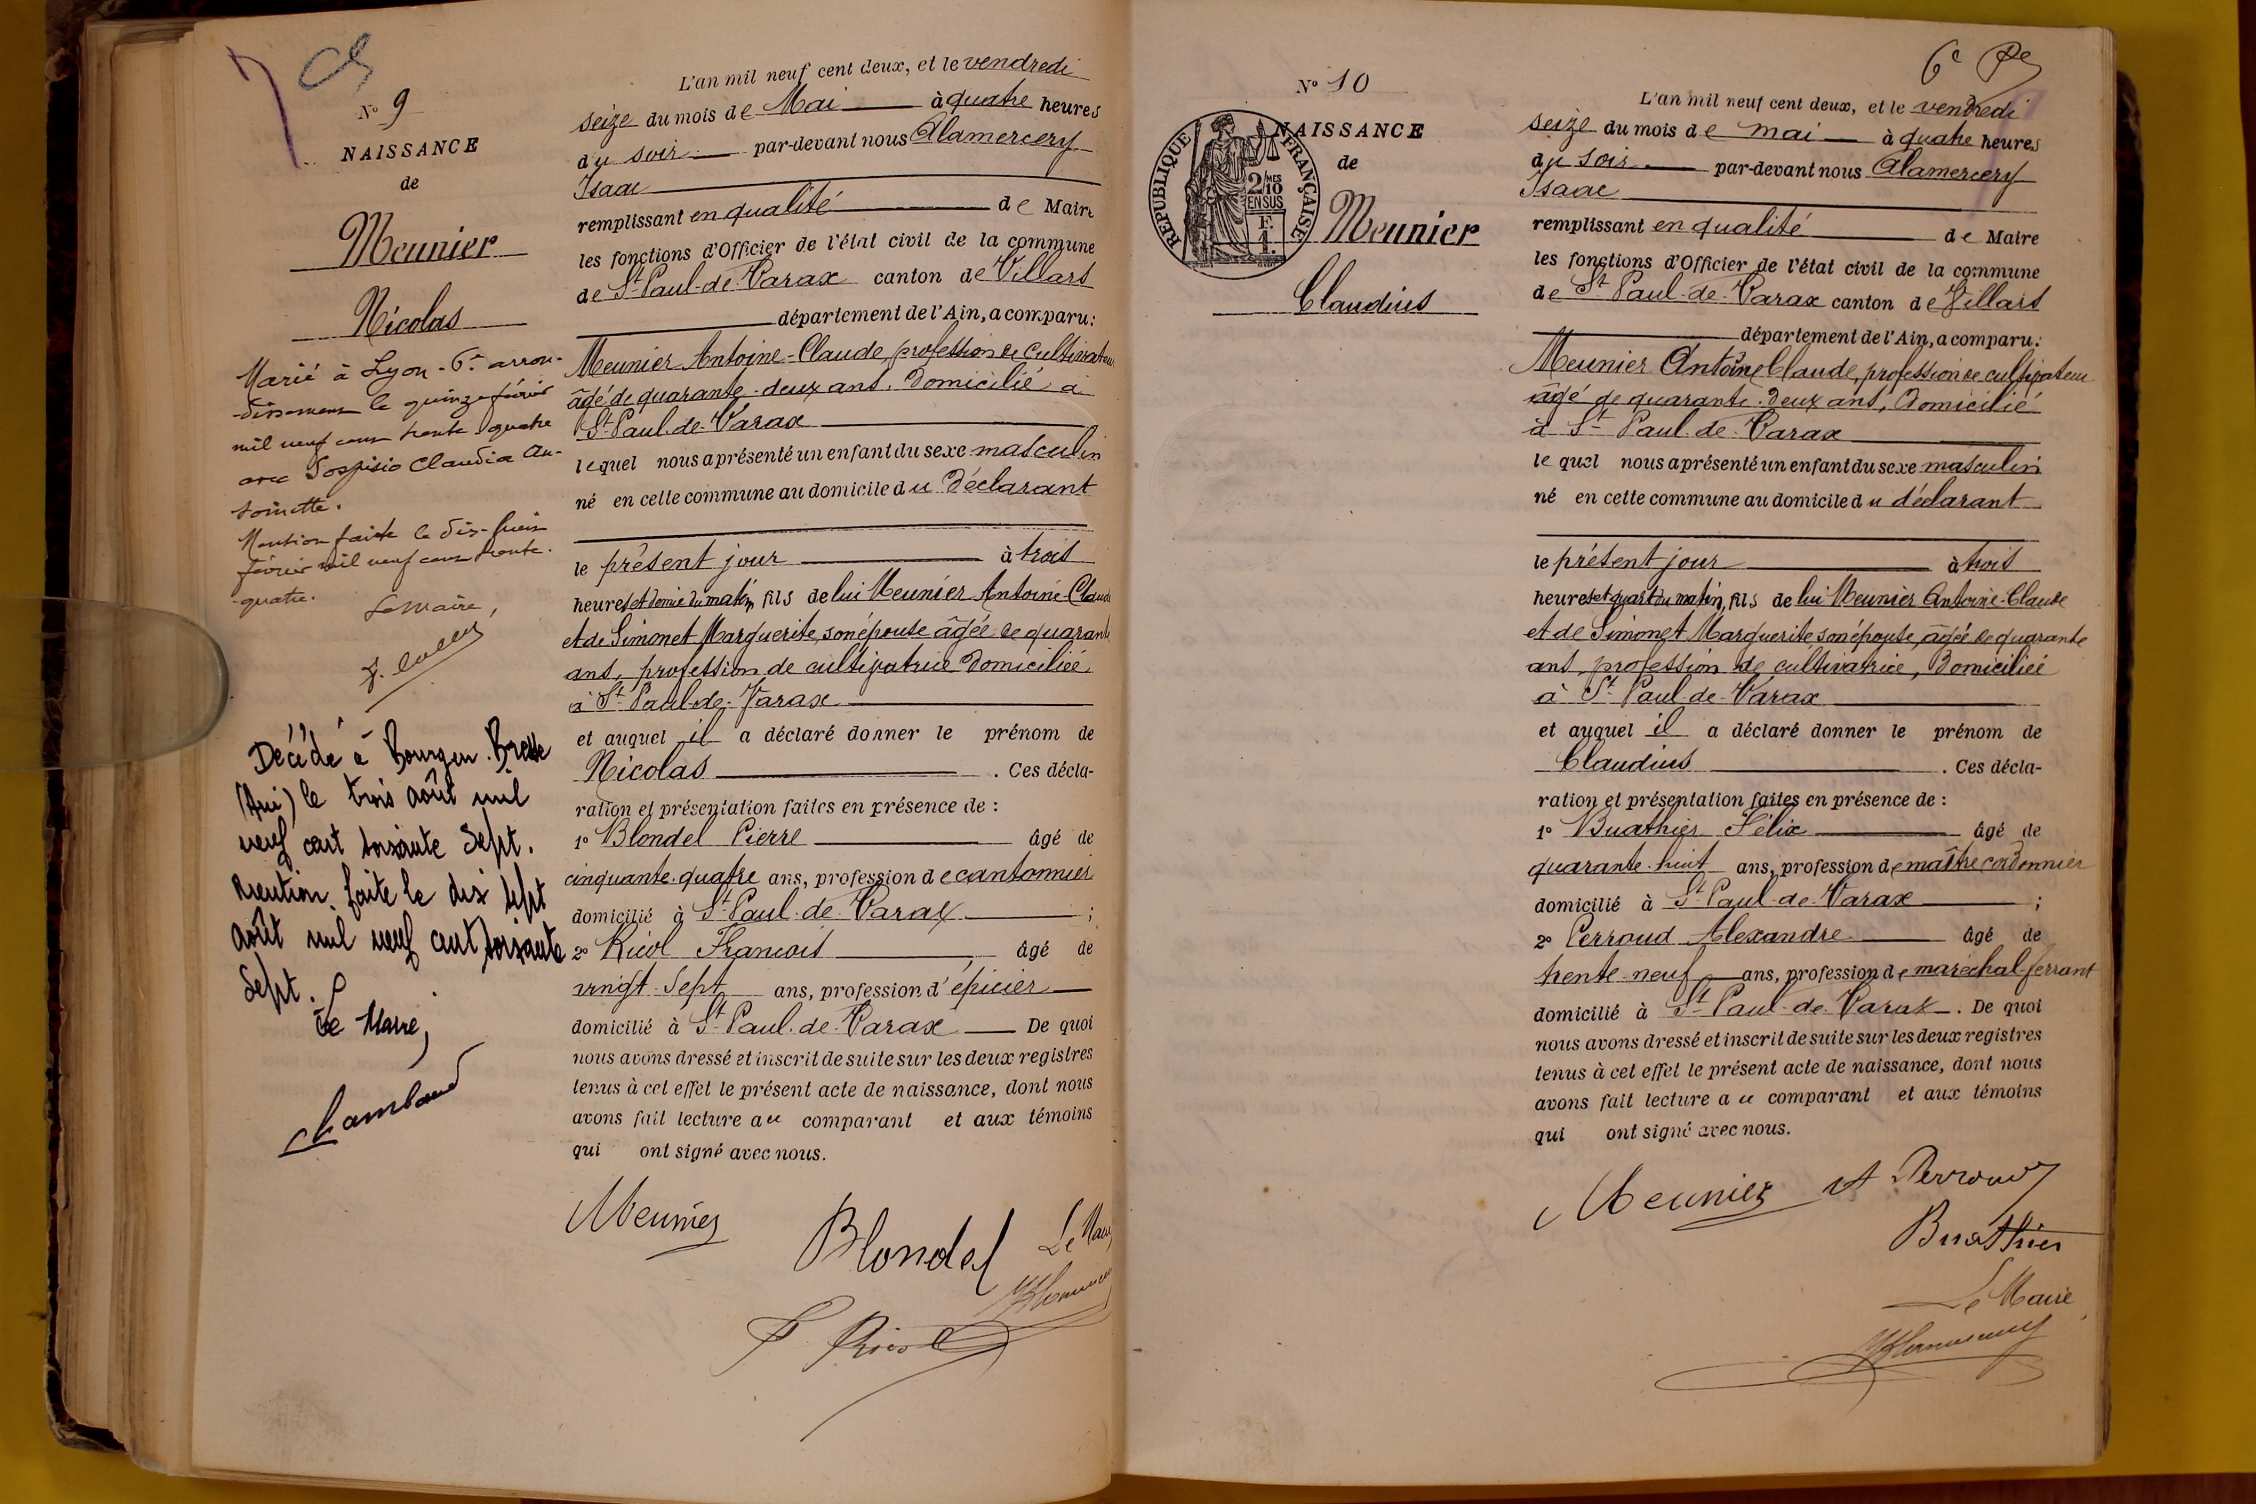 Nº 9
NAISSANCE
de
Meunier
Nicolas
Marié à Lyon - 6e arron-
-dissement le quinze février
mil neuf cent trente quatre
avec Claudia An-
toinette.
Mention faite le dix-huit
février mil neuf cent trente.
-quatre.
Le maire,
Décédé à Bourg en Bresse
(Ain) le trois août mil
neuf cent soixante sept.
Mention faite le dix sept
août mil neuf cent soixante
sept.
Le Maire,
Chambaud
L'an mil neuf cent deux, et le vendredi
seize du mois de Mai à quatre heures
du soir par-devant nous Alamercery
Isaac
remplissant en qualité de Maire
les fonctions d'Officier de l'état civil de la commune
de St Paul-de-Varax canton de Villars
département de l'Ain, a comparu:
Meunier Antoine-Claude, profession de cultivateur
âgé de quarante-deux ans. Domicilié à
St Paul-de-Varax
lequel nous a présenté un enfant du sexe masculin
né en cette commune au domicile du Déclarant
le présent jour à trois
heures et demie du matin, fils de lui Meunier Antoine Claude
et de Simonet Marguerite, son épouse âgée de quarante
ans, profession de cultivatrice Domiciliée
à St Paul-de-Varax
et auquel il a déclaré donner le prénom de
Nicolas . Ces décla-
ration et présentation faites en présence de :
1º Blondel Pierre âgé de
cinquante-quatre ans, profession de cantonnier
domicilié à St Paul-de-Varax ;
2º Ricol Francois, âgé de
vingt-sept ans, profession d'épicier
domicilié à St Paul-de-Varax De quoi
nous avons dressé et inscrit de suite sur les deux registres
tenus à cet effet le présent acte de naissance, dont nous
avons fait lecture au comparant et aux témoins
qui ont signé avec nous.
Meunier
Blondel
Le Maire
F Ricol
6e Pe
Nº 10
NAISSANCE
de
REPUBLIQUE FRANÇAISE
2/10 MES
EN SUS
F.
1.
Meunier
Claudius
L'an mil neuf cent deux, et le vendredi
seize du mois de mai à quatre heures
du soir par-devant nous Alamercery
Isaac
remplissant en qualité de Maire
les fonctions d'Officier de l'état civil de la commune
de St Paul-de-Varax canton de Villars
département de l'Ain, a comparu:
Meunier Antoine Claude, profession de cultivateur
âgé de quarante-deux ans, Domicilié
à St Paul-de-Varax
lequel nous a présenté un enfant du sexe masculin
né en cette commune au domicile du déclarant
le présent jour à trois
heures et quart du matin, fils de lui Meunier Antoine-Claude
et de Simonet Marguerite son épouse, âgée de quarante
ans, profession de cultivatrice, Domiciliée
à St Paul-de-Varax
et auquel il a déclaré donner le prénom de
Claudius . Ces décla-
ration et présentation faites en présence de :
1º Buathier Félix âgé de
quarante-huit ans, profession de maître cordonnier
domicilié à St Paul-de-Varax ;
2º Perroud Alexandre âgé de
trente-neuf ans, profession de maréchal-ferrant
domicilié à St Paul-de-Varax. De quoi
nous avons dressé et inscrit de suite sur les deux registres
tenus à cet effet le présent acte de naissance, dont nous
avons fait lecture au comparant et aux témoins
qui ont signé avec nous.
Meunier A Perroud
Buathier
Le Maire